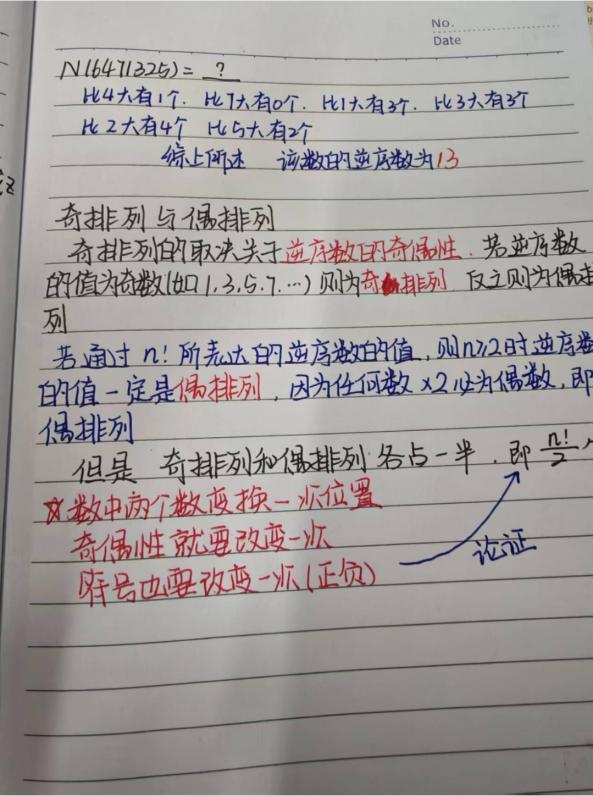 No.
Date
N(6471325)= ?
比4大有1个. 比7大有0个. 比1大有3个. 比3大有3个
比2大有4个 比5大有2个
综上所述 该数的逆序数为13
奇排列与偶排列
奇排列的取决关于逆序数的奇偶性. 若逆序数
的值为奇数(如1.3.5.7.…)则为奇排列 反之则为偶排
列
若通过n!所表达的逆序数的值,则n≥2时逆序数
的值一定是偶排列,因为任何数×2必为偶数,即
偶排列
但是 奇排列和偶排列各占一半.即n!/2个
☆数中两个数变换一次位置
奇偶性就要改变一次
符号也要改变一次(正负)
论证